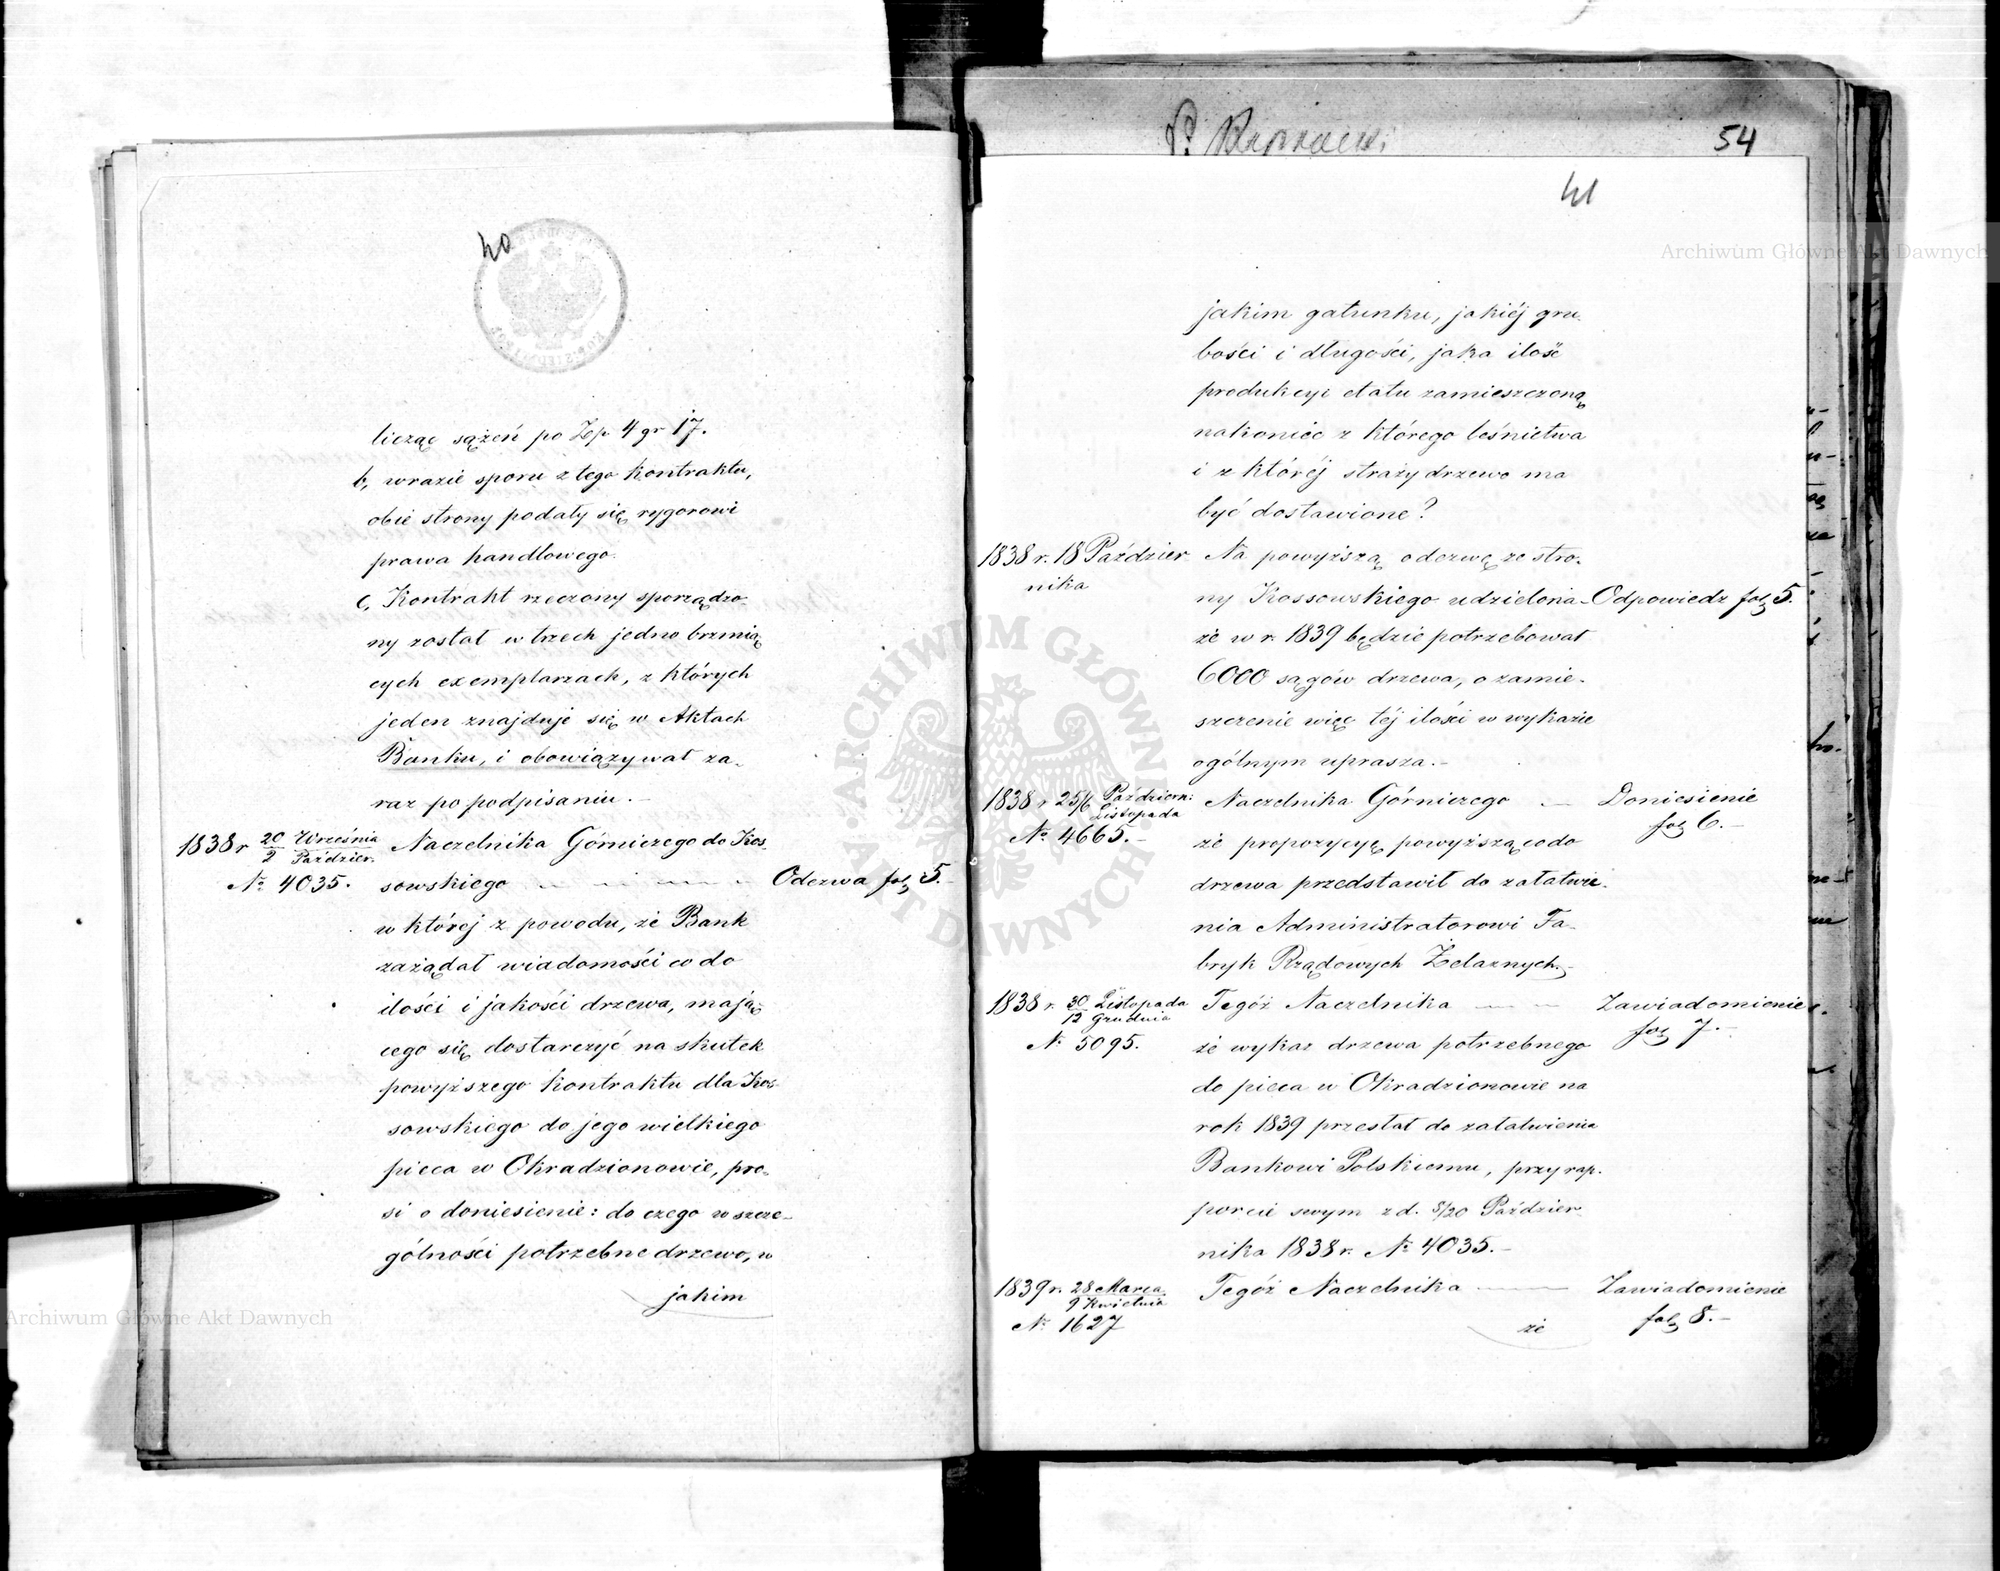 40
licząc sążeń po Złp. 4 gr 17.
b, wrazie sporu z tego kontraktu,
obie strony podały się rygorowi
prawa handlowego.
c, Kontrakt rzeczony sporządzo-
ny został w trzech jedno brzmią
cych exemplarzach, z których
jeden znajduje się w Aktach
Banku, i obowiązywał za-
raz po podpisaniu.-
1838 r 20/2 Września/Paździer. Naczelnika Górniczego do Kos
No 4035. sowskiego Odezwa fol 5.-
w której z powodu, że Bank
zażądał wiadomości co do
ilości i jakości drzewa, mają-
cego się dostarczyć na skutek
powyższego kontraktu dla Kos-
sowskiego do jego wielkiego
pieca w Okradzionowie, pro-
si o doniesienie: do czego w szcze-
gólności potrzebne drzewo, w
jakim
54
41
jakim gatunku, jakiéj gru-
bości i długości, jaka ilość
produkcyi etatu zamieszczoną
nakoniec z którego leśnictwa
i z któréj straży drzewo ma
być dostawione?
1838 r. 18 Paździer- Na powyższą odezwę ze stro-
nika
ny Kossowskiego udzielona- Odpowiedz fol 5.
że w r. 1839 będzie potrzebował
6000 sągów drzewa, o zamie-
szczenie więc téj ilości w wykazie
ogólnym uprasza.-
1838 r 25/6 Październ:/Listopada Naczelnika Górniczego - Doniesienie
No 4665.- fol 6.-
że propozycyę powyższą co do
drzewa przedstawił do załatwie-
nia Administratorowi Fa-
bryk Rządowych Żelaznych.-
1838 r. 30/12 Listopada/Grudnia Tegóż Naczelnika - - Zawiadomienie
fol 7.-
No 5095. że wykaz drzewa potrzebnego
do pieca w Okradzionowie na
rok 1839 przesłał do załatwienia
Bankowi Polskiemu, przy rap-
porcie swym z d. 8/20 Paździer-
nika 1838 r. No 4035.-
1839 r. 28 Marca/9 Kwietnia Tegóż Naczelnika - Zawiadomienie
No 1627 fol 8.-
że
Archiwum Główne Akt Dawnych
Archiwum Główne Akt Dawnych
ARCHIWUM GŁÓWNE AKT DAWNYCH